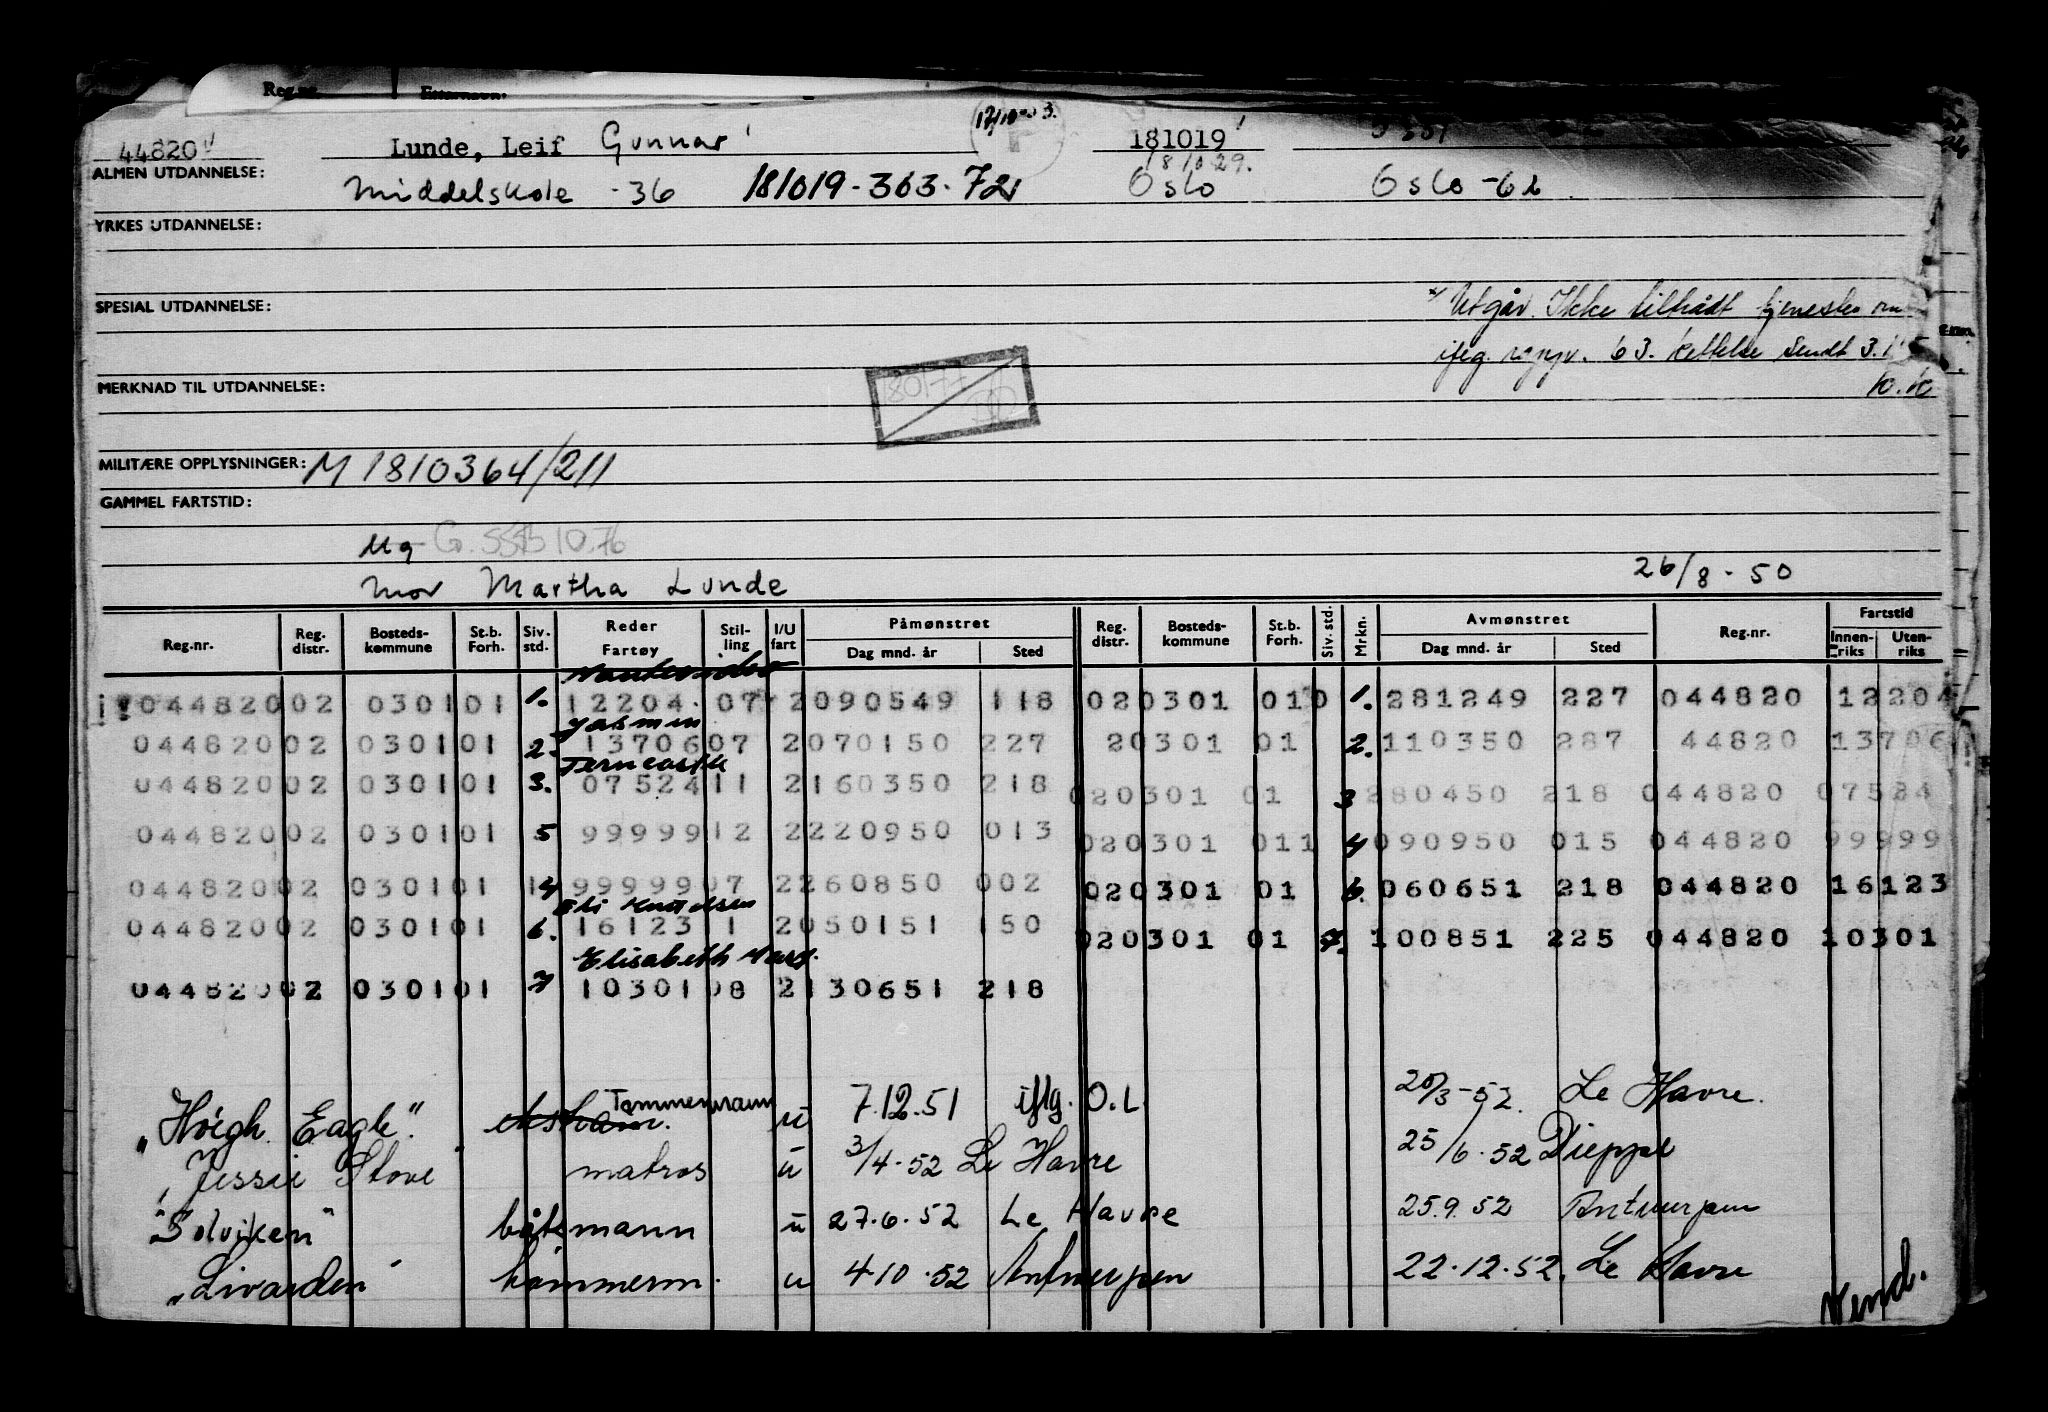 Reg.nr. Etternavn.
44820 Lunde, Leif Gunnar 181019
18 10 29.
ALMEN UTDANNELSE: Middelskole -36 181019-363.72 Oslo Oslo -62
YRKES UTDANNELSE:
SPESIAL UTDANNELSE: Utgår. Ikke tiltrådt tjeneste
63. Kettelse Sendt
MERKNAD TIL UTDANNELSE:
MILITÆRE OPPLYSNINGER: M 1810364/211
GAMMEL FARTSTID:
Ug
mor Martha Lunde 26/8-50
Reg.nr. Reg. distr. Bosteds-kommune St.b. Forh. Siv. std. Reder Fartøy Stil-ling I/U fart Påmønstret Dag mnd. år Sted Reg. distr. Bosteds-kommune St.b. Forh. Siv. std. Mrkn. Avmønstret Dag mnd. år Sted Reg.nr. Fartstid Innen-riks Uten-riks
044820 02 0301 01 1. 12204 07 2 090549 118 02 0301 01 0 1. 281249 227 044820 12204
Jasmin
044820 02 0301 01 2. 13706 07 2 070150 227 2 0301 01 2. 110350 287 44820 13706
Ferncastle
044820 02 0301 01 3. 07524 11 2 160350 218 02 0301 01 3 280450 218 044820 07524
044820 02 0301 01 5 99999 12 2 220950 013 02 0301 01 1 4 090950 015 044820 99999
044820 02 0301 01 1 4 99999 07 2 260850 002 02 0301 01 6. 060651 218 044820 16123
Eli Knudsen
044820 02 0301 01 6. 16123 11 2 050151 150 02 0301 01 7. 100851 225 044820 10301
Elisabeth
044820 02 0301 01 7 10301 08 2 130651 218
"Höigh Eagle". Tømmermann u 7.12.51 iflg. O.L. 20/3-52. Le Havre.
"Jessie Stove" matros u 3/4-52 Le Havre 25/6.52 Dieppe
"Solviken" båtsmann u 27.6.52 Le Havre 25.9.52 Antwerpen
"Livarden" tömmerm. u 4.10.52 Antwerpen 22.12.52. Le Havre
Vend.